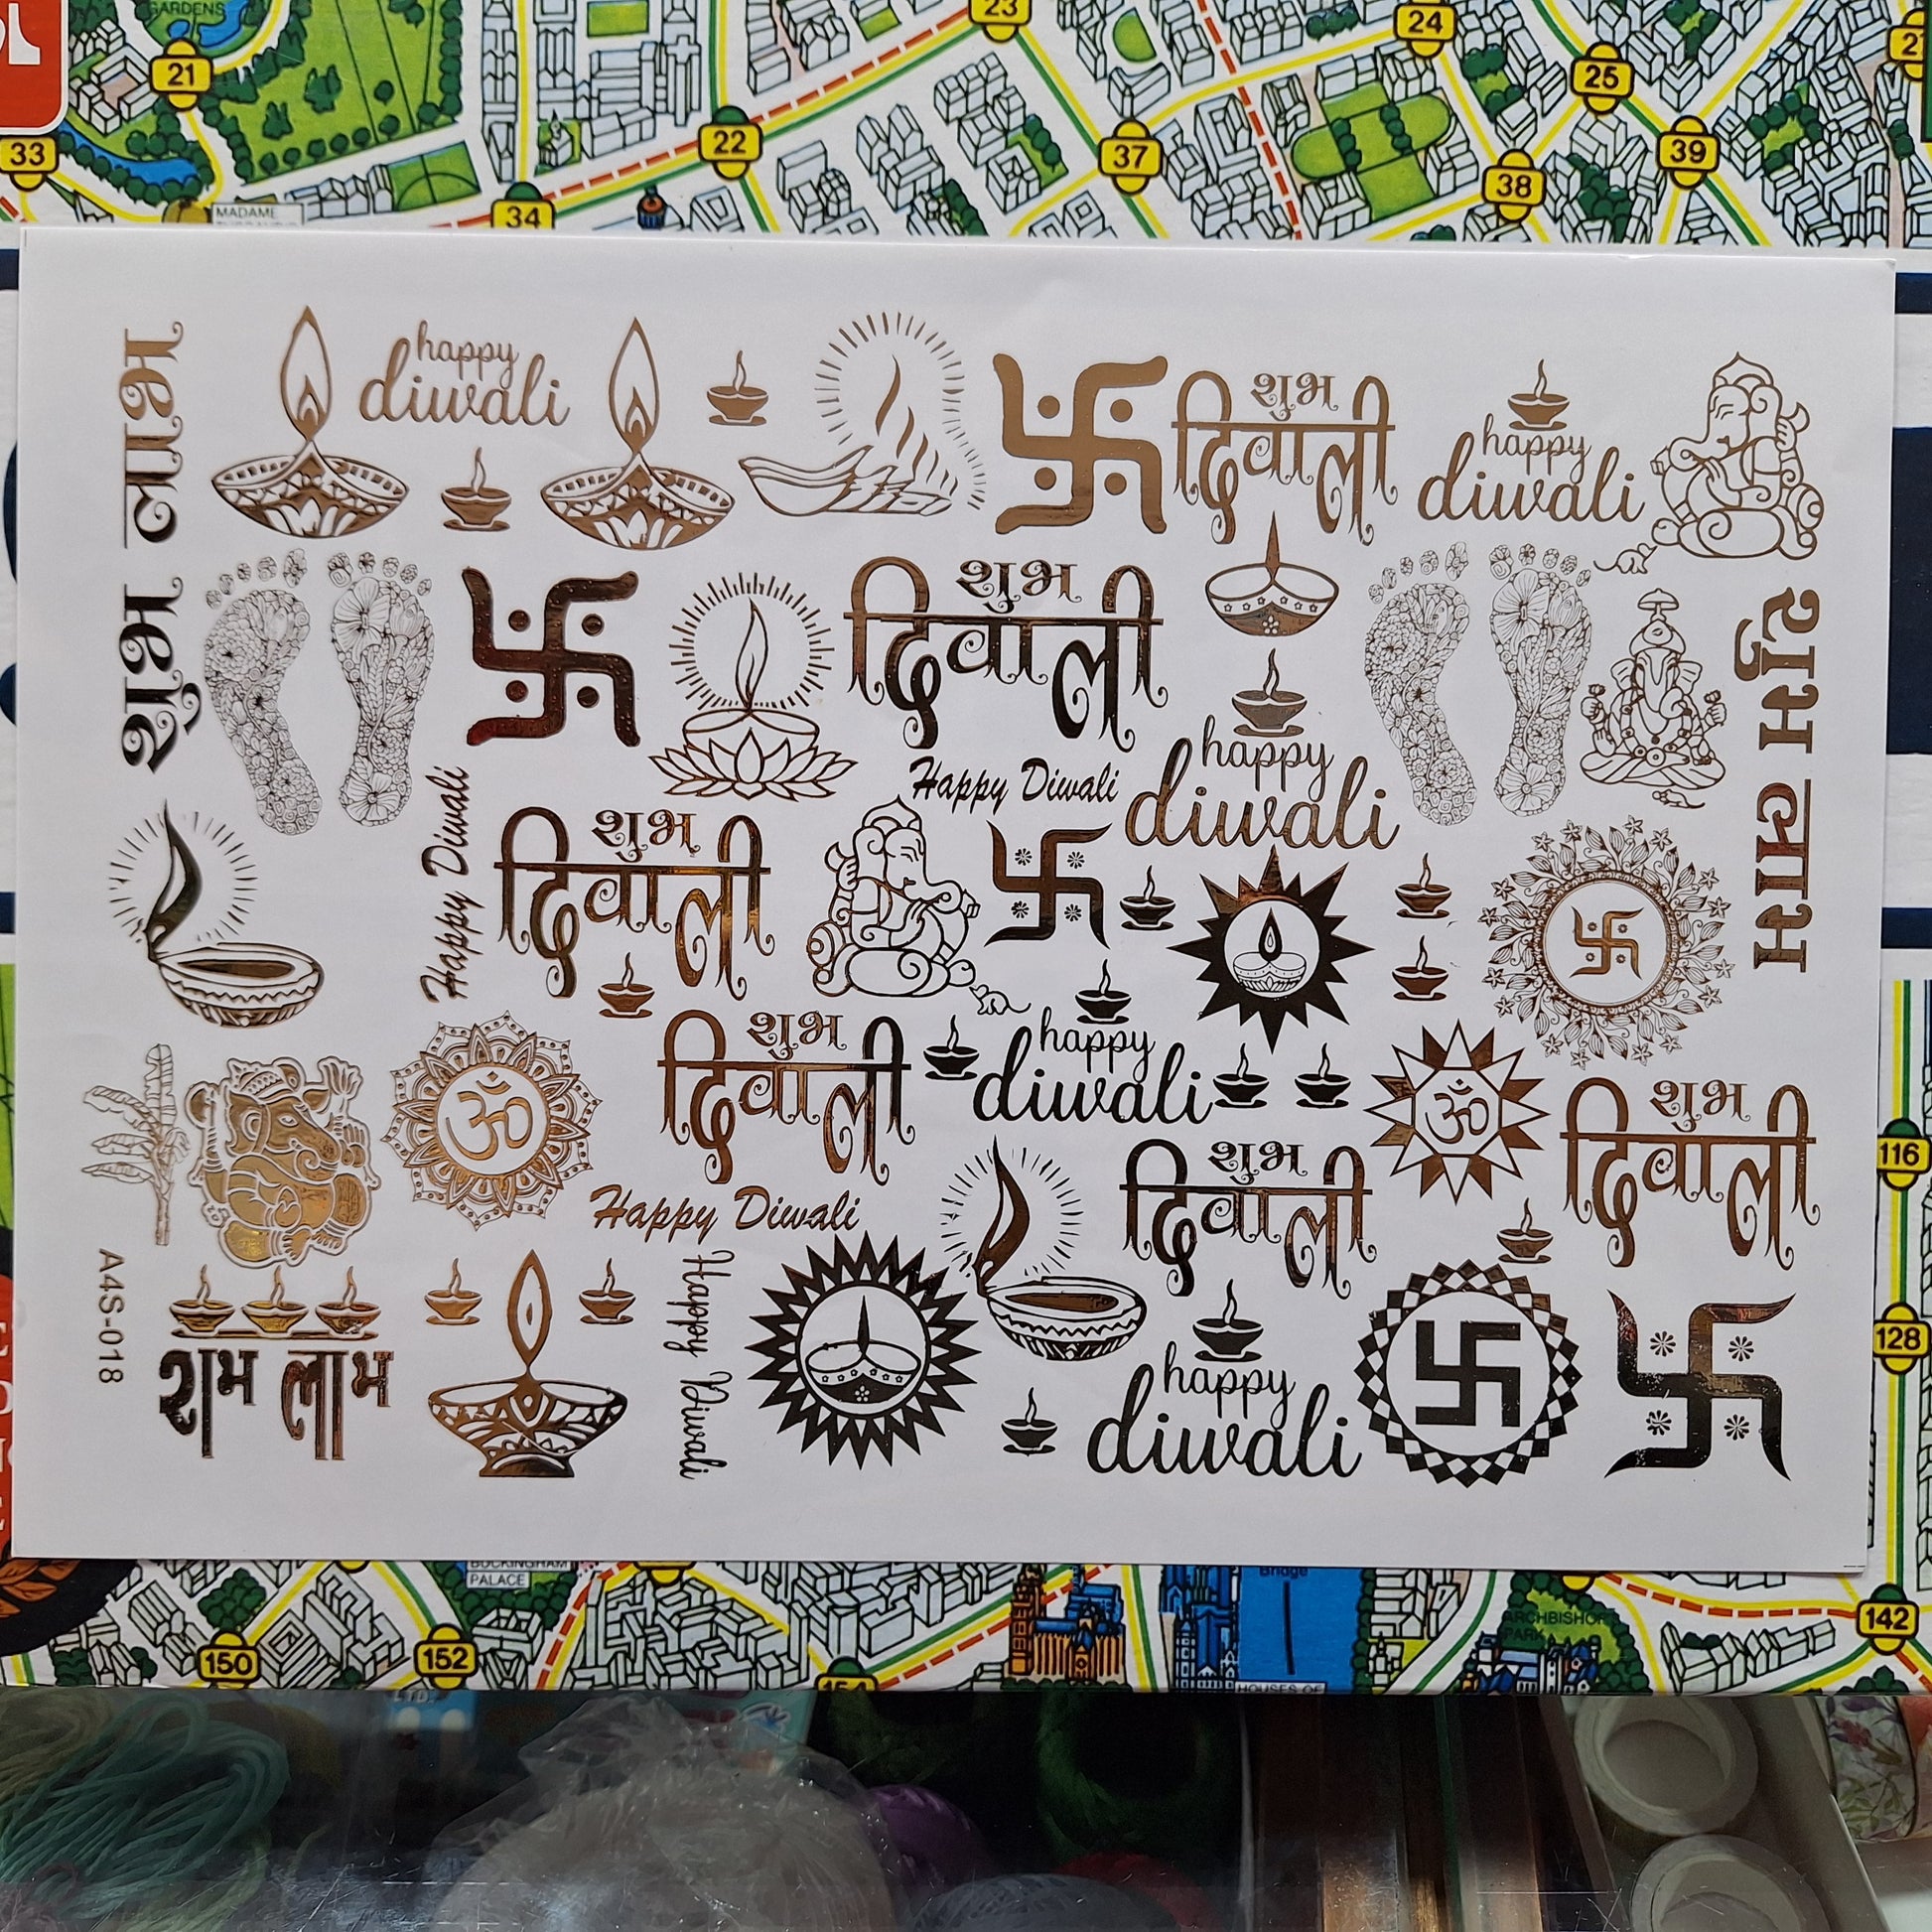 GARDENS
23
24
21
25
22
37
39
33
38
34
MADAME
happy
diwali
शुभ
दिवाली
happy
diwali
शुभ लाभ
शुभ
दिवाली
शुभ लाभ
happy
diwali
Happy Diwali
Happy Diwali
शुभ
दिवाली
happy
diwali
शुभ
दिवाली
शुभ
दिवाली
शुभ
दिवाली
Happy Diwali
A4S-018
शुभ लाभ
Happy Diwali
happy
diwali
116
128
BUCKINGHAM
PALACE
Bridge
ARCHBISHOP
PARK
142
150
152
154
HOUSES OF
LTD.